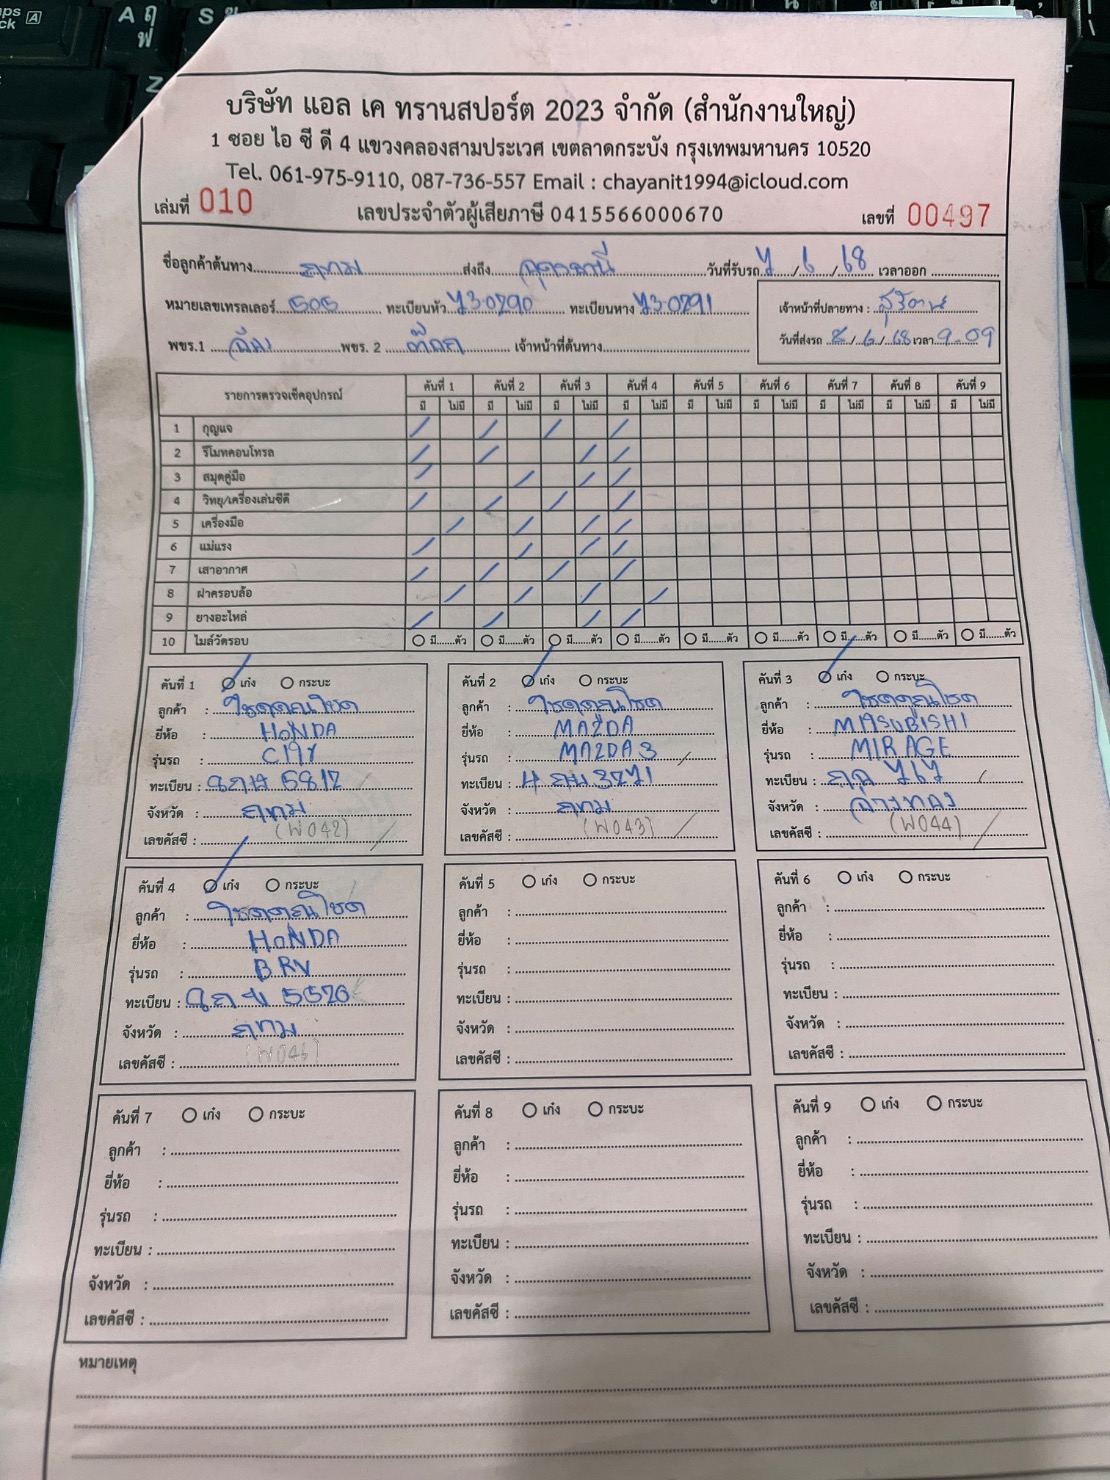 บริษัท แอล เค ทรานสปอร์ต 2023 จำกัด (สำนักงานใหญ่)
1 ซอย ไอ ซี ดี 4 แขวงคลองสามประเวศ เขตลาดกระบัง กรุงเทพมหานคร 10520
Tel. 061-975-9110, 087-736-557 Email : chayanit1994@icloud.com
เล่มที่ 010 เลขประจำตัวผู้เสียภาษี 0415566000670 เลขที่ 00497
ชื่อลูกค้าต้นทาง กทม ส่งถึง อุดรธานี วันที่รับรถ 7/6/68 เวลาออก
หมายเลขเทรลเลอร์ ทะเบียนหัว 73-0290 ทะเบียนหาง 73-0291 เจ้าหน้าที่ปลายทาง :
พขร.1 พขร. 2 เจ้าหน้าที่ต้นทาง วันที่ส่งรถ 8/6/68 เวลา 9.09
รายการตรวจเช็คอุปกรณ์ คันที่ 1 คันที่ 2 คันที่ 3 คันที่ 4 คันที่ 5 คันที่ 6 คันที่ 7 คันที่ 8 คันที่ 9
มี ไม่มี มี ไม่มี มี ไม่มี มี ไม่มี มี ไม่มี มี ไม่มี มี ไม่มี มี ไม่มี มี ไม่มี
1 กุญแจ
2 รีโมทคอนโทรล
3 สมุดคู่มือ
4 วิทยุ/เครื่องเล่นซีดี
5 เครื่องมือ
6 แม่แรง
7 เสาอากาศ
8 ฝาครอบล้อ
9 ยางอะไหล่
10 ไมล์วัดรอบ มี......ตัว มี......ตัว มี......ตัว มี......ตัว มี......ตัว มี......ตัว มี......ตัว มี......ตัว มี......ตัว
คันที่ 1 เก๋ง กระบะ
ลูกค้า :
ยี่ห้อ : HONDA
รุ่นรถ : CITY
ทะเบียน :
จังหวัด : กทม
เลขคัสซี : (W042)
คันที่ 2 เก๋ง กระบะ
ลูกค้า :
ยี่ห้อ : MAZDA
รุ่นรถ : MAZDA 3
ทะเบียน :
จังหวัด : กทม
เลขคัสซี : (W043)
คันที่ 3 เก๋ง กระบะ
ลูกค้า :
ยี่ห้อ : MASUBISHI
รุ่นรถ : MIRAGE
ทะเบียน :
จังหวัด : อ่างทอง
เลขคัสซี : (W044)
คันที่ 4 เก๋ง กระบะ
ลูกค้า :
ยี่ห้อ : HONDA
รุ่นรถ : BRV
ทะเบียน :
จังหวัด : กทม
เลขคัสซี :
คันที่ 5 เก๋ง กระบะ
ลูกค้า :
ยี่ห้อ :
รุ่นรถ :
ทะเบียน :
จังหวัด :
เลขคัสซี :
คันที่ 6 เก๋ง กระบะ
ลูกค้า :
ยี่ห้อ :
รุ่นรถ :
ทะเบียน :
จังหวัด :
เลขคัสซี :
คันที่ 7 เก๋ง กระบะ
ลูกค้า :
ยี่ห้อ :
รุ่นรถ :
ทะเบียน :
จังหวัด :
เลขคัสซี :
คันที่ 8 เก๋ง กระบะ
ลูกค้า :
ยี่ห้อ :
รุ่นรถ :
ทะเบียน :
จังหวัด :
เลขคัสซี :
คันที่ 9 เก๋ง กระบะ
ลูกค้า :
ยี่ห้อ :
รุ่นรถ :
ทะเบียน :
จังหวัด :
เลขคัสซี :
หมายเหตุ